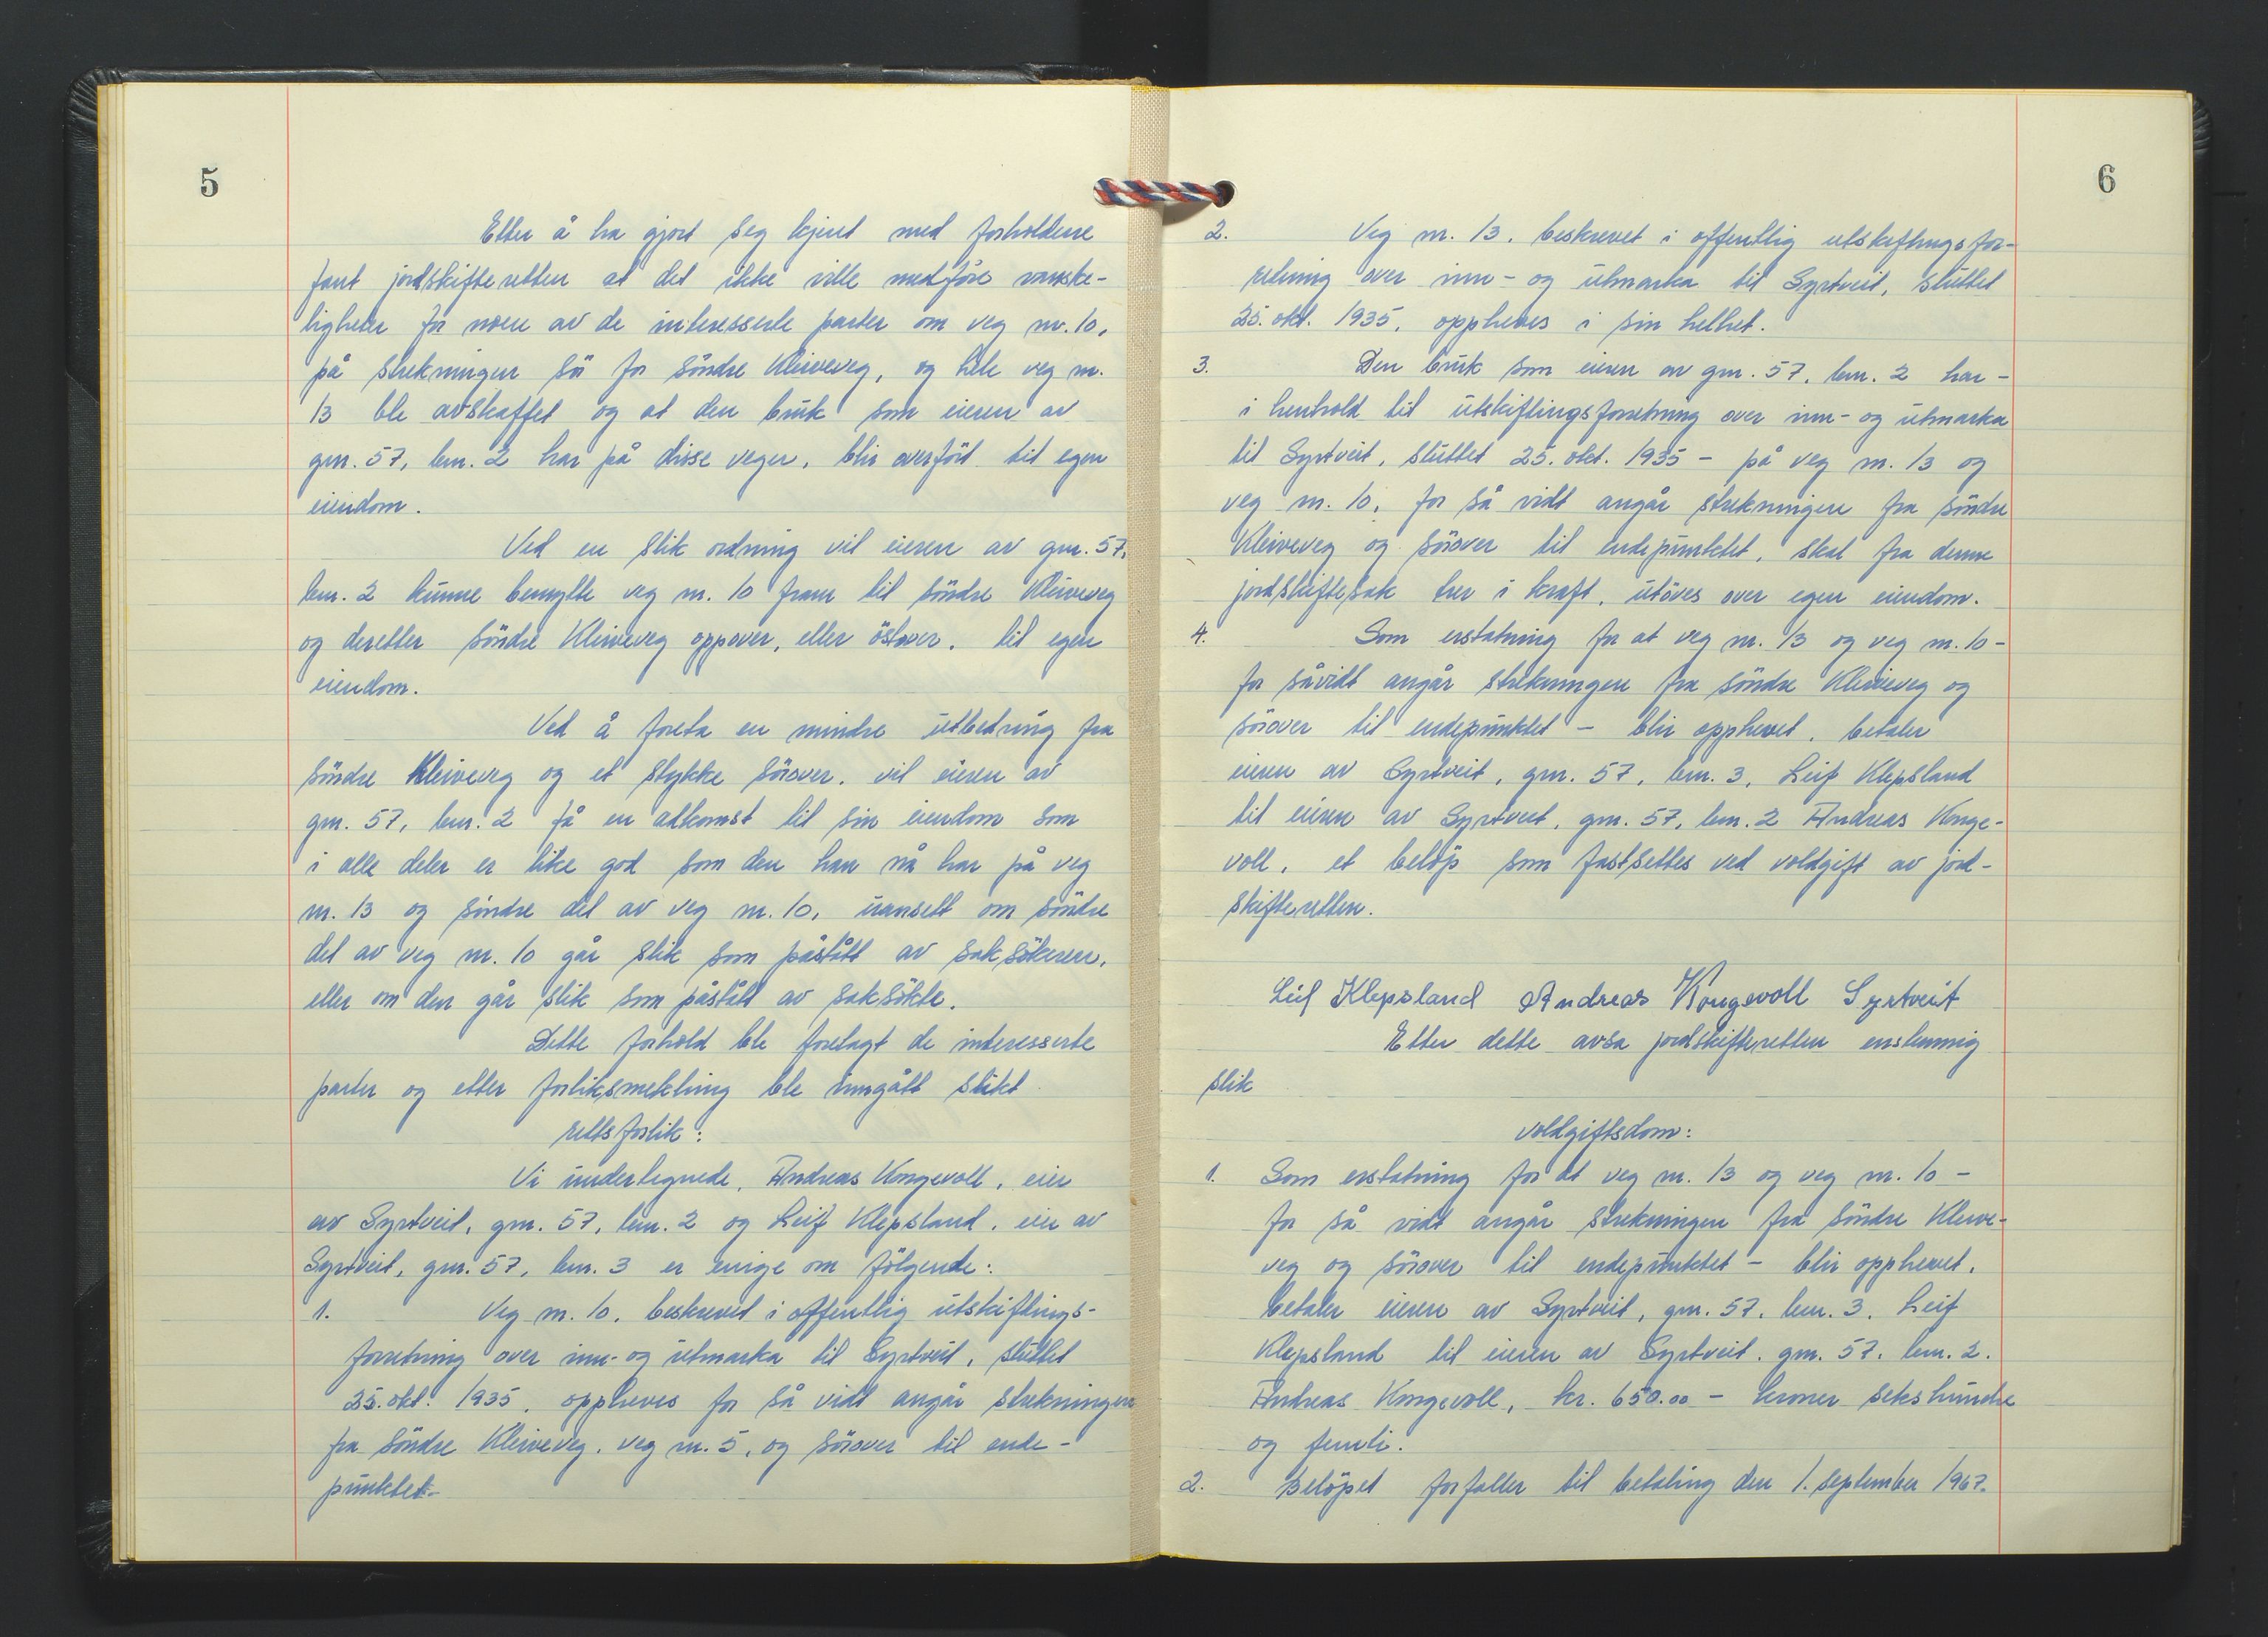 5
Etter å ha gjort seg kjent med forholdene
fant jordskifteretten at det ikke ville medføre vanske-
ligheter for noen av de interesserte parter om veg nr. 10,
på strekningen sør for søndre Kleiveveg, og hele veg nr.
13 ble avskaffet og at den bruk som eieren av
gnr. 57, bnr. 2 har på disse veger, blir overført til egen
eiendom.
Ved en slik ordning vil eieren av gnr. 57,
bnr. 2 kunne benytte veg nr. 10 fram til søndre Kleiveveg
og deretter søndre Kleiveveg oppover, eller östover, til egen
eiendom.
Ved å foreta en mindre utbedring fra
søndre Kleiveveg og et stykke sørover, vil eieren av
gnr. 57, bnr. 2 få en atkomst til sin eiendom som
i alle deler er like god som den han nå har på veg
nr. 13 og søndre del av veg nr. 10, uansett om søndre
del av veg nr. 10 går slik som påstått av saksökeren,
eller om den går slik som påstått av saksökte.
Dette forhold ble forelagt de interesserte
parter og etter forliksmekling ble inngått slikt
rettsforlik:
Vi undertegnede, Andreas Kongevoll, eier
av Syrtveit, gnr. 57, bnr. 2 og Leif Klepsland, eier av
Syrtveit, gnr. 57, bnr. 3 er enige om følgende:
1. Veg nr. 10, beskrevet i offentlig utskiftings-
forretning over inn- og utmarka til Syrtveit, sluttet
25. okt. 1935, oppheves for så vidt angår strekningen
fra søndre Kleiveveg, veg nr. 5, og sørover til ende-
punktet-
6
2. Veg nr. 13, beskrevet i offentlig utskiftingsfor-
retning over inn- og utmarka til Syrtveit, sluttet
25. okt. 1935, oppheves i sin helhet.
3. Den bruk som eieren av gnr. 57, bnr. 2 har -
i henhold til utskiftingsforretning over inn- og utmarka
til Syrtveit, sluttet 25. okt. 1935 - på veg nr. 13 og
veg nr. 10, for så vidt angår strekningen fra søndre
Kleiveveg og sørover til endepunktet, skal fra denne
jordskiftesak trer i kraft, utøves over egen eiendom.
4. Som erstatning for at veg nr. 13 og veg nr. 10 -
for såvidt angår strekningen fra søndre Kleiveveg og
sørover til endepunktet - blir opphevet, betaler
eieren av Syrtveit, gnr. 57, bnr. 3, Leif Klepsland
til eieren av Syrtveit, gnr. 57, bnr. 2 Andreas Konge-
voll, et beløp som fastsettes ved voldgift av jord-
skifteretten.
Leif Klepsland Andreas Kongevoll Syrtveit
Etter dette avsa jordskifteretten enstemmig
slik
voldgiftsdom:
1. Som erstatning for at veg nr. 13 og veg nr. 10 -
for så vidt angår strekningen fra søndre Kleive-
veg og sørover til endepunktet - blir opphevet,
betaler eieren av Syrtveit, gnr. 57, bnr. 3, Leif
Klepsland til eieren av Syrtveit, gnr. 57, bnr. 2,
Andreas Kongevoll, kr. 650.00 - kroner sekshundre
og femti.
2. Beløpet forfaller til betaling den 1. september 1967.